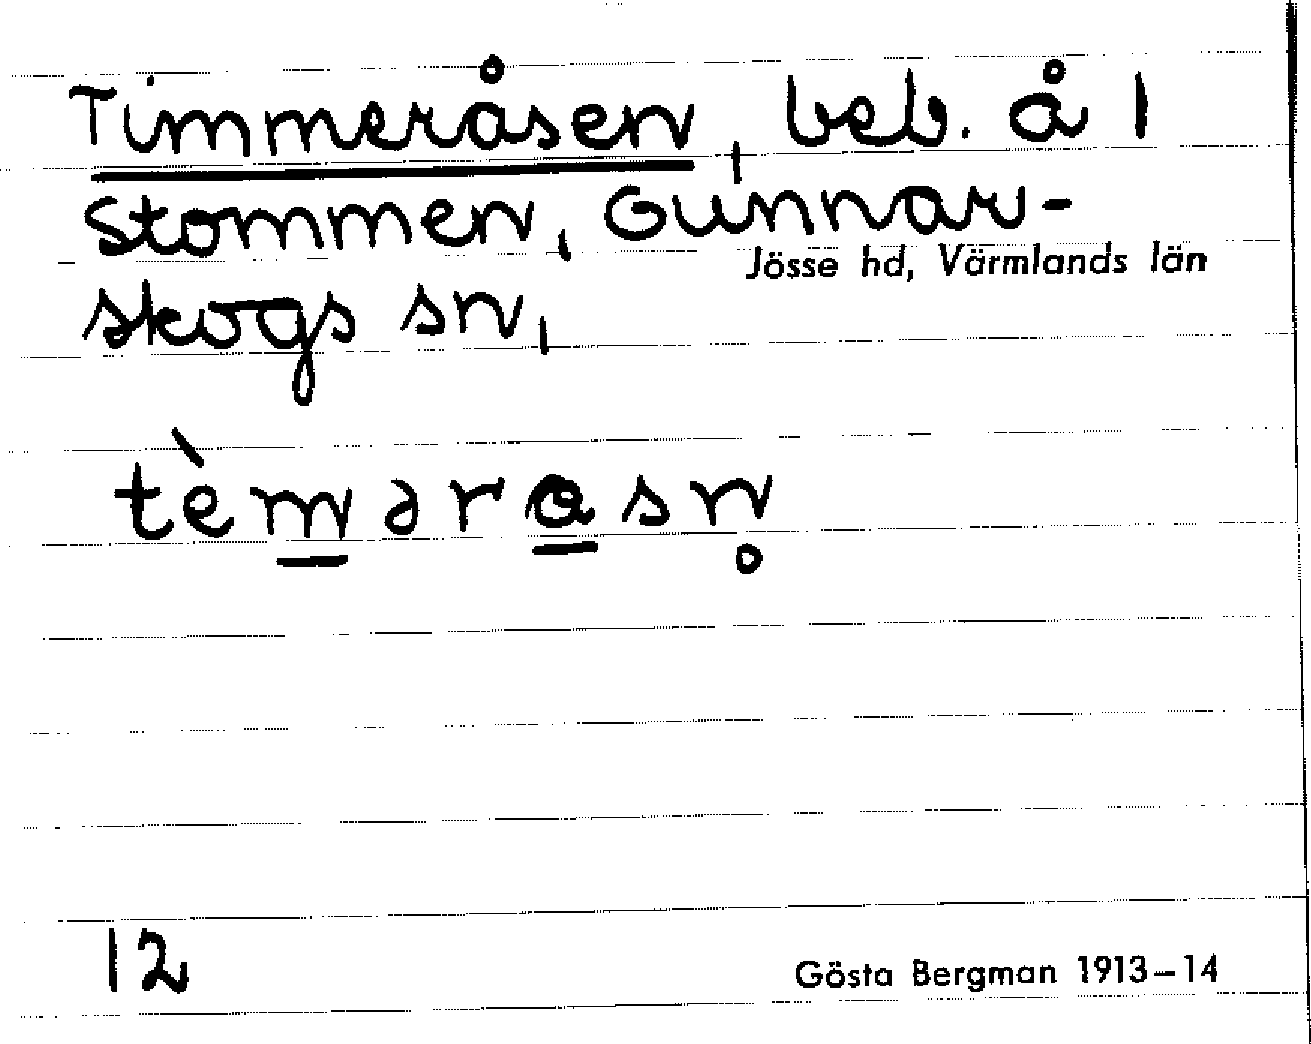 Timmeråsen, beb. å 1
Stommen, Gunnar-
Jösse hd, Värmlands län
skogs sn,
tèm̲ərɑ̲sn̥
12
Gösta Bergman 1913–14